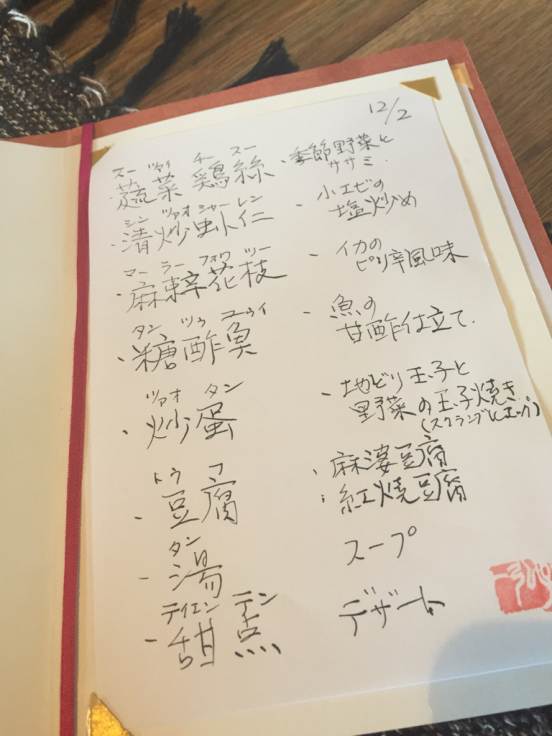 12/2
スー ツァイ チー スー
・蔬菜 鶏絲
・季節野菜と
ササミ
シン ツァオ シャーレン
・清炒虾仁
・小エビの
塩炒め
マー ラー フォワ ツー
・麻辣花枝
・イカの
ピリ辛風味
タン ツゥ ユゥイ
・糖酢魚
・魚の
甘酢仕立て
ツァオ タン
・炒蛋
・地どり玉子と
野菜の玉子焼き
(スクランブルエッグ)
トウ フ
・豆腐
・麻婆豆腐
・紅焼豆腐
タン
・湯
スープ
テイエン テン
・甜点
デザート